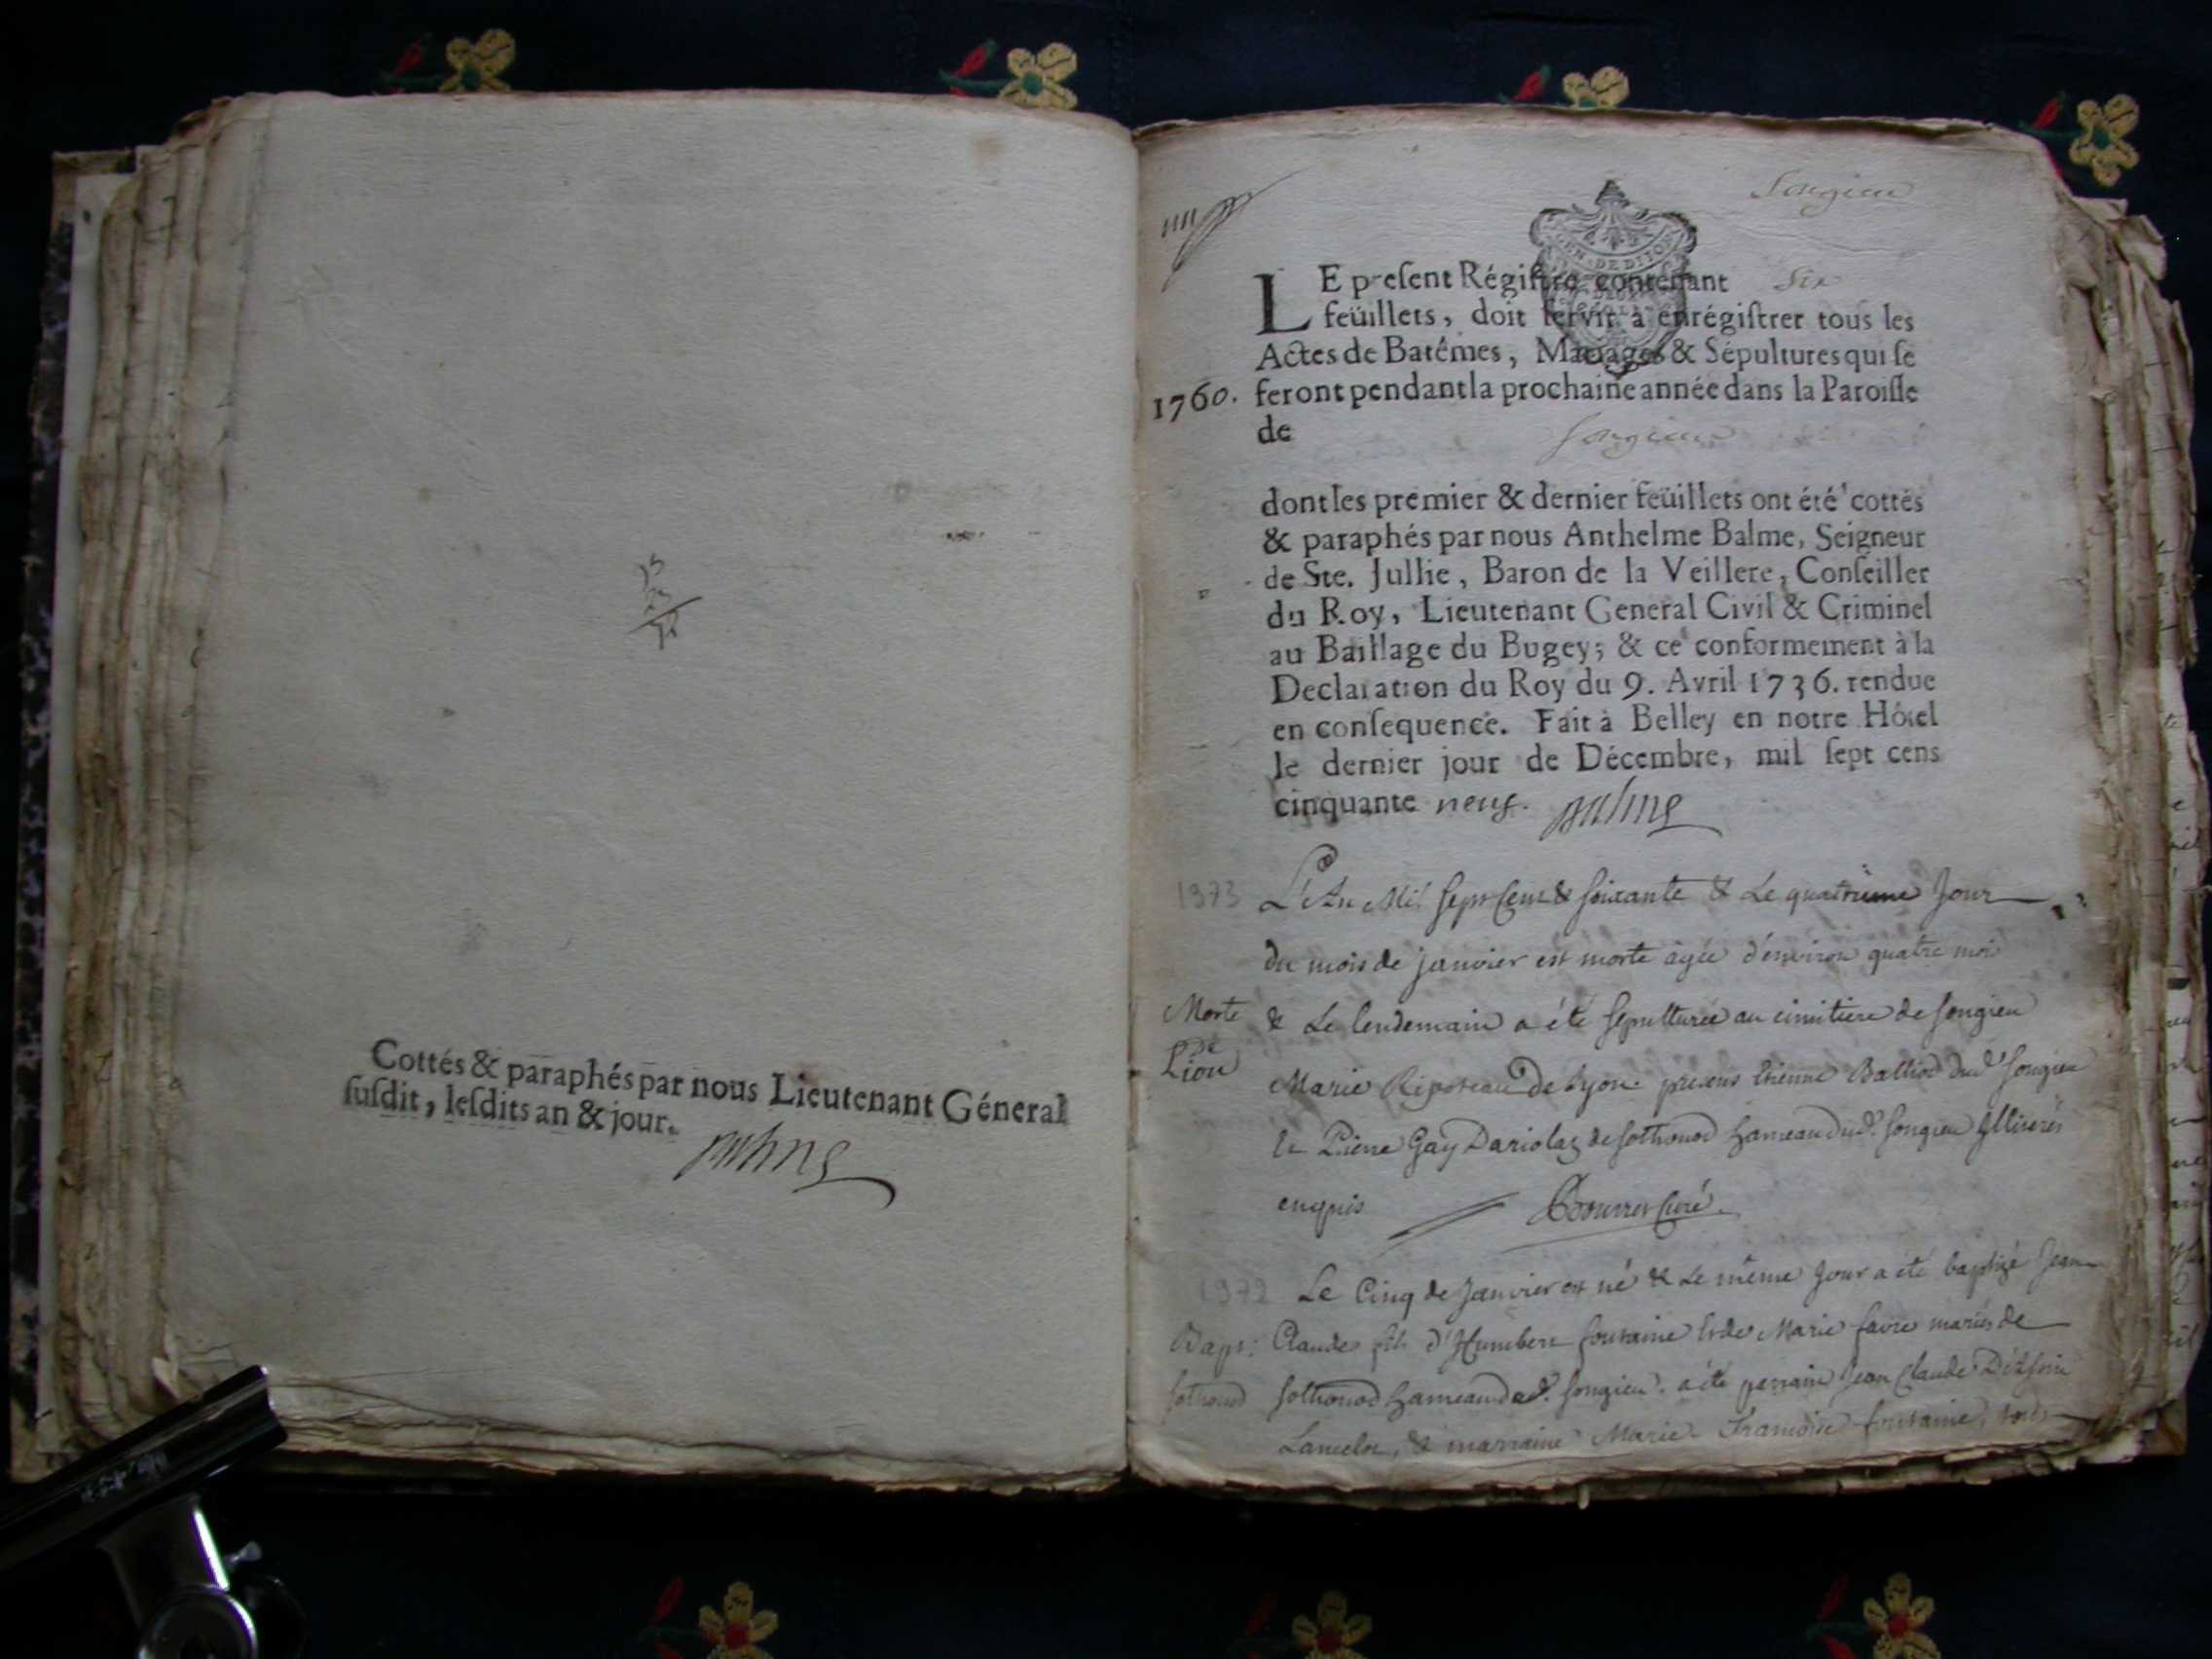 Cottés & paraphés par nous Lieutenant Géneral
susdit, lesdits an & jour.
Balme
Songieu
GEN. DE DIJON
LE present Régistre contenant Six
feüillets, doit servir à enrégistrer tous les
Actes de Batêmes, Mariages & Sépultures qui se
1760. feront pendant la prochaine année dans la Paroisse
de Songieu
dont les premier & dernier feüillets ont été cottés
& paraphés par nous Anthelme Balme, Seigneur
de Ste. Jullie, Baron de la Veillere, Conseiller
du Roy, Lieutenant General Civil & Criminel
au Baillage du Bugey; & ce conformement à la
Declaration du Roy du 9. Avril 1736. rendue
en consequence. Fait à Belley en notre Hôtel
le dernier jour de Décembre, mil sept cens
cinquante neuf. Balme
1973 L'An Mil Sept Cent & soixante & Le quatrieme Jour
du mois de janvier est morte agée d'environ quatre mois
Morte & Le lendemain a été sepulturée au cimitiere de songieu
de Lion
Marie de Lyon presens Etienne Balliod dud. songieu
Et Pierre Gay Dariolaz de sothonod hameau dud. songieu Illiterés
enquis Curé.
1972 Le Cinq de Janvier est né & Le même Jour a été baptizé Jean
Bapt: Claude fils d'Humbert fontaine Et de Marie favre mariés de
sothonod sothonod hameau dud. songieu. a été parrain Jean Claude
Lancelot, & marraine Marie Francoise fontaine, tous